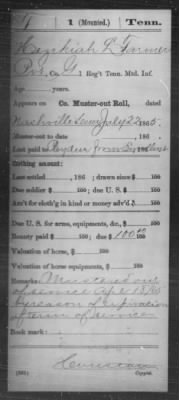 T | 1 (Mounted.) | Tenn.
Hezekiah L
Pvt, Co. G, 1 Reg't Tenn. Mtd. Inf.
Age years.
Appears on Co. Muster-out Roll, dated
Nashville Tenn July 22, 1865.
Muster-out to date , 186 .
Last paid to
Clothing account:
Last settled , 186 ; drawn since $ 100
Due soldier $ 100; due U. S. $ 100
Am't for cloth'g in kind or money adv'd $ 100
Due U. S. for arms, equipments, &c., $ 100
Bounty paid $ 100; due $ 100 00/100
Valuation of horse, $ 100
Valuation of horse equipments, $ 100
Remarks: Mustered out
of service
by reason of expiration
of term of service
Book mark:
(861) Copyist.